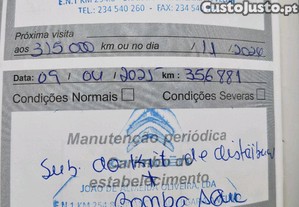 E.N.1 KM 254
TEL.: 234 540 260 - FAX: 234 540 261
CustoJusto.pt
Próxima visita
aos 315000 km ou no dia /11/2024
Data: 09/04/2025 km: 356881
Condições Normais Condições Severas
Manutenção periódica
Carimbo do
estabelecimento
Sub. do kit de distribuição
+
JOÃO DE ALMEIDA OLIVEIRA, LDA
Bomba água
E.N.1 KM 254